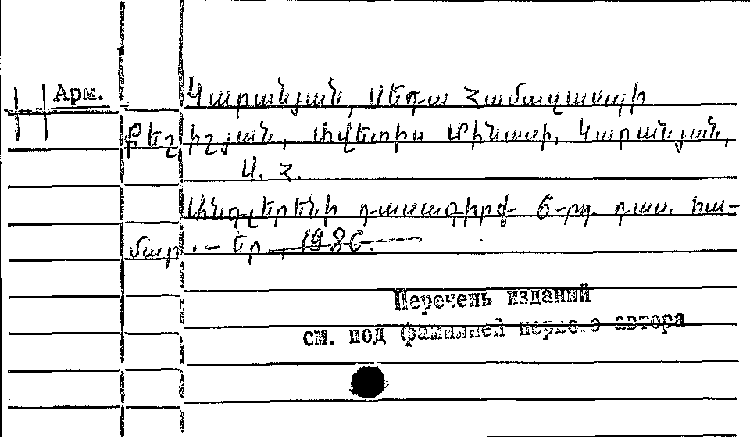 Арм.
Կարանյան, Սեդա Համազասպի
Քեշիշյան, Ավետիս Մինասի, Կարանյան,
Ս. Հ.
Անգլերենի դասագիրք 6-րդ դաս. հա-
մար. – Եր., 1986.
Перечень изданий
см. под фамилией первого автора